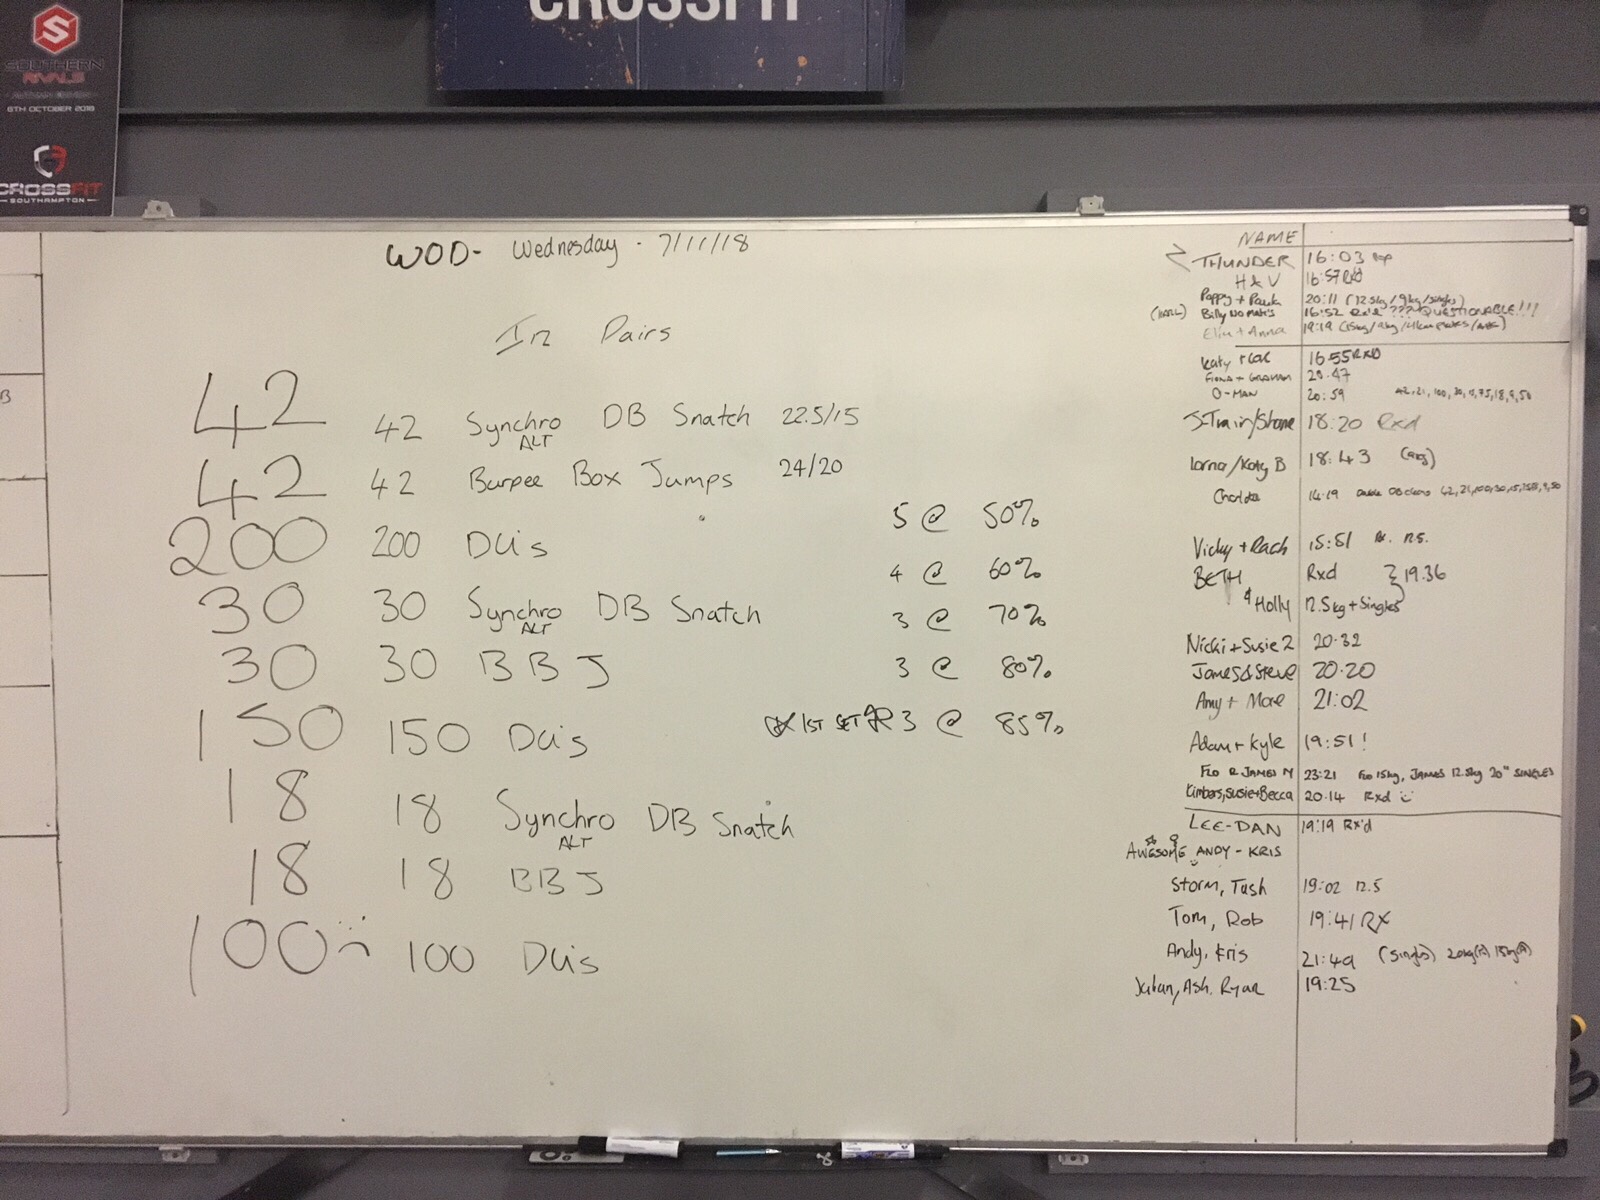 CROSSFIT
SOUTHERN
RIVALS
6TH OCTOBER 2018
CROSSFIT
SOUTHAMPTON
B
WOD - Wednesday - 7/11/18
In Pairs
42 42 Synchro DB Snatch 22.5/15
ALT
42 42 Burpee Box Jumps 24/20
200 200 DU's
30 30 Synchro DB Snatch
ALT
30 30 BBJ
150 150 DU's
18 18 Synchro DB Snatch
ALT
18 18 BBJ
100 100 DU's
5 @ 50%
4 @ 60%
3 @ 70%
3 @ 80%
1ST SET 3 @ 85%
NAME
THUNDER 16:03
H & V 16:57 RXD
Poppy + Paula 20:11 (12.5kg/9kg/singles)
Billy No Mates 16:52 Rx'd ??? QUESTIONABLE!!!
+ Anna 19:19
Katy + 16:55 RXD
FIONA + GRAHAM 20.47
O-MAN 20:59
J-Train/Shane 18:20 Rxd
Lorna/Katy B 18:43
14:19
Vicky + Rach 15:51
BETH Rxd } 19.36
& Holly 12.5kg + Singles
Nicki + Susie 2 20:32
James & Steve 20:20
Amy + 21:02
Adam + Kyle 19:51!
FLO & JAMES M 23:21 FLO 15kg, JAMES 12.5kg 20" SINGLES
Kimbers, Susie + Becca 20.14 Rxd
LEE-DAN 19:19 Rx'd
AWESOME ANDY - KRIS
Storm, Tash 19:02 12.5
Tom, Rob 19:41 RX
Andy, Kris 21:49 (singls)
Julian, Ash, Ryan 19:25